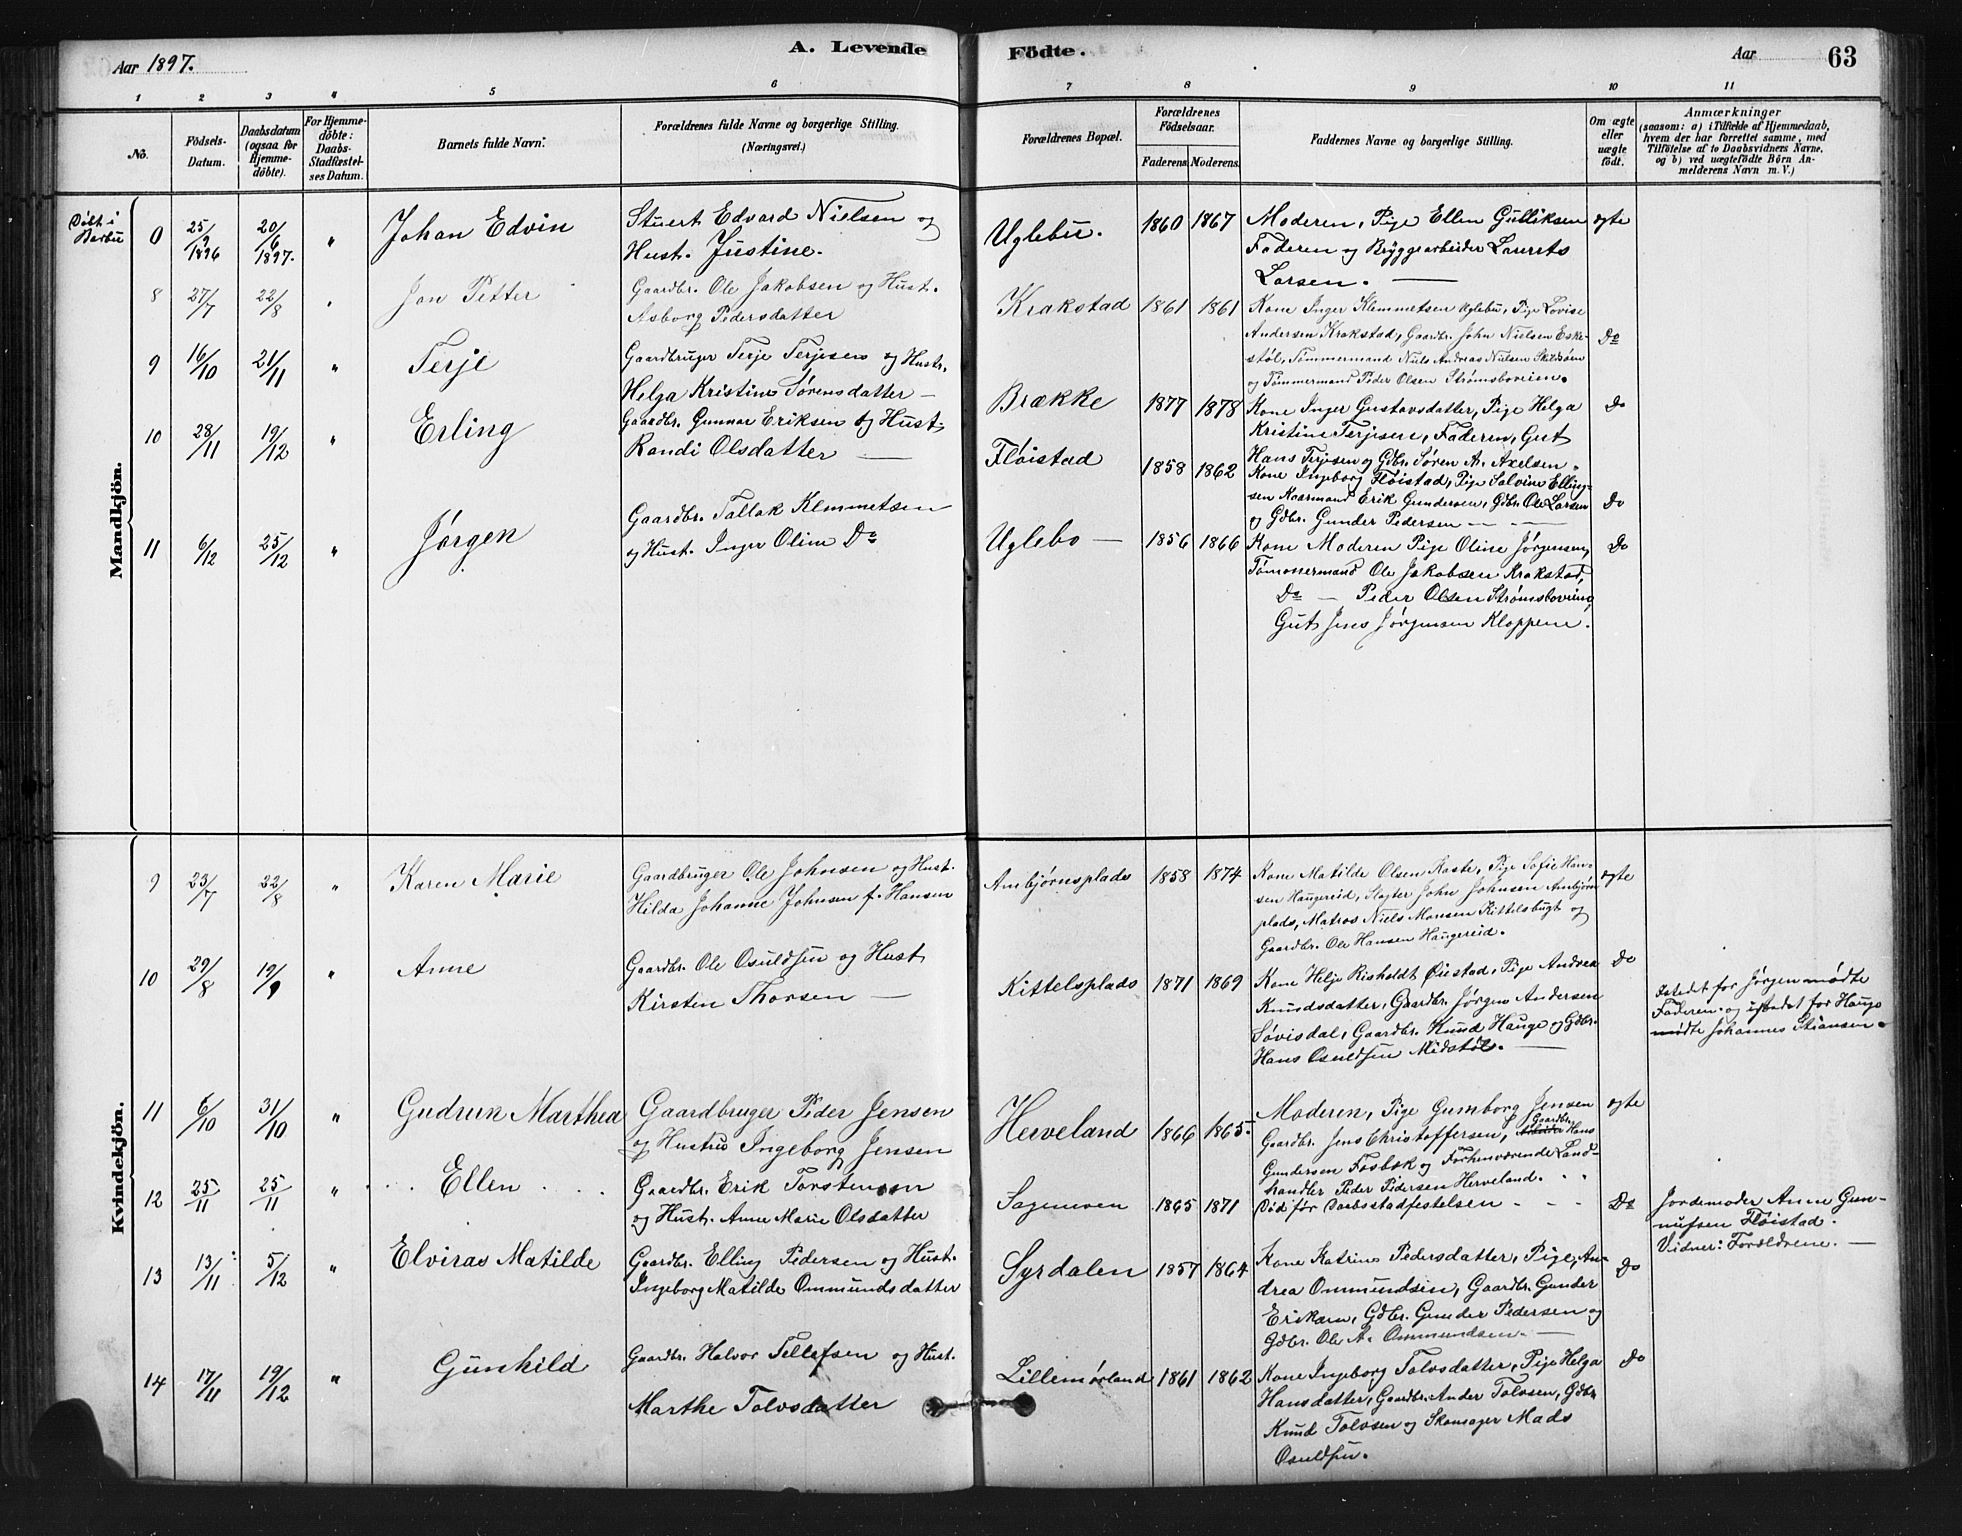 Aar 1897.
A. Levende
Födte.
Aar
63
1 2 3 4 5 6 7 8 9 10 11
No.
Födsels-
Datum.
Daabsdatum
(ogsaa for
Hjemme-
döbte).
For Hjemme-
döbte:
Daabs-
Stadfæstel-
ses Datum.
Barnets fulde Navn.
Forældrenes fulde Navne og borgerlige Stilling.
(Næringsvei.)
Forældrenes Bopæl.
Forældrenes
Födselsaar.
Faderens. Moderens.
Faddernes Navne og borgerlige Stilling.
Om ægte
eller
uægte
födt.
Anmærkninger
(saasom: a) i Tilfælde af Hjemmedaab,
hvem der har forrettet samme, med
Tilföielse af to Daabsvidners Navne,
og b) ved uægtefödte Börn An-
melderens Navn m. V.)
Mandkjön.
Døbt i
Barbu
0 25/9 1896 20/6 1897. " Johan Edvin
Stuert Edvard Nielsen og
Hust. Justine.
Uglebu. 1860 1867
Moderen, Pige Ellen Gulliksen
Faderen og Bryggearbeider Laurits
Larsen. —
ægte
8 27/7 22/8 " Jon Petter
Gaardbr. Ole Jakobsen og Hust.
Asborg Pedersdatter
Krakstad 1861 1861
Kone Inger Klemmetsen Uglebu, Pige Lovise
Andersen Krakstad, Gaardbr. John Nielsen Eske-
støl, Tømmermand Niels Andreas Nielsen
og Tømmermand Peder Olsen Strømsboveien.
Do
9 16/10 21/11 " Terje
Gaardbruger Terje Terjesen og Hustr.
Helga Kristine Sørensdatter —
Brække 1877 1878
Kone Inger Gustavsdatter, Pige Helga
Kristine Terjesen, Faderen, Gut
Hans Terjesen og Gdbr. Søren A. Axelsen.
Do
10 28/11 19/12 " Erling
Gaardbr. Gunnar Eriksen og Hust.
Randi Olsdatter —
Fløistad 1858 1862
Kone Ingeborg Fløistad, Pige Salvine Elling-
sen Kaarmand Erik Gundersen, Gdbr. Ole Larsen
og Gdbr. Gunder Pedersen — —
Do
11 6/12 25/12 " Jørgen
Gaardbr. Tallak Klemmetsen
og Hust. Inger Oline Do
Uglebo — 1856 1866
Kone Moderen Pige Oline Jørgensen,
Tømmermand Ole Jakobsen Krakstad,
Do — Peder Olsen Strømsboveien,
Gut Jens Jørgensen Kloppene.
Do
Kvindekjön.
9 23/7 22/8 " Karen Marie
Gaardbruger Ole Johnsen og Hust.
Hilda Johanne Johnsen f. Hansen
Ambjørnsplads 1858 1874
Kone Matilde Olsen Raste, Pige Sofie Han-
sen Haugereid, Slagter John Johnsen Ambjørn
plads, Matros Niels Monsen Kittelsbugt og
Gaardbr. Ole Hansen Haugereid.
ægte
10 29/8 19/9 " Anne
Gaardbr. Ole Osuldsen og Hust
Kirsten Thorsen —
Kittelsplads 1871 1869
Kone Helje Risholdt Øiestad, Pige Andrea
Knudsdatter, Gaardbr. Jørgen Andersen
Søvisdal, Gaardbr. Knud Hauge og Gdbr.
Hans Osuldsen Midstøl. —
Do
Istedet for Jørgen mødte
Faderen og istedet for Hauge
mødte Johannes Stiansen.
11 6/10 31/10 " Gudrun Marthea
Gaardbruger Peder Jensen
og Hustru Ingeborg Jensen
Herveland 1866 1865.
Moderen, Pige Gumborg Jensen
Gaardbr. Jens Christoffersen, Gaardbr. Hans
Gundersen Fosbæk og Forhenværende Land-
handler Peder Pedersen Herveland.
ægte
12 25/11 25/11 " Ellen
Gaardbr. Erik Torstensen
og Hust. Anne Marie Olsdatter
Sagemoen 1865 1871
Død før Daabsstadfestelsen - - -
Do
Jordemoder Anne Gun-
nufsen Fløistad.
Vidner: Forældrene. —
13 13/11 5/12 " Elviras Matilde
Gaardbr. Elling Pedersen og Hust.
Ingeborg Matilde Ommundsdatter
Syrdalen 1857 1864
Kone Katrine Pedersdatter, Pige An-
drea Ommundsen, Gaardbr. Gunder
Eriksen, Gdbr. Gunder Pedersen og
Gdbr. Ole A. Ommundsen. —
Do
14 17/11 19/12 " Gunhild
Gaardbr. Halvor Tellefsen og Hust.
Marthe Tolvsdatter
Lillemørland 1861 1862
Kone Ingeborg Tolvsdatter, Pige Helga
Hansdatter, Gaardbr. Ander Tolvsen, Gdbr.
Knud Tolvsen og Skomager Mads
Osuldsen.
Do